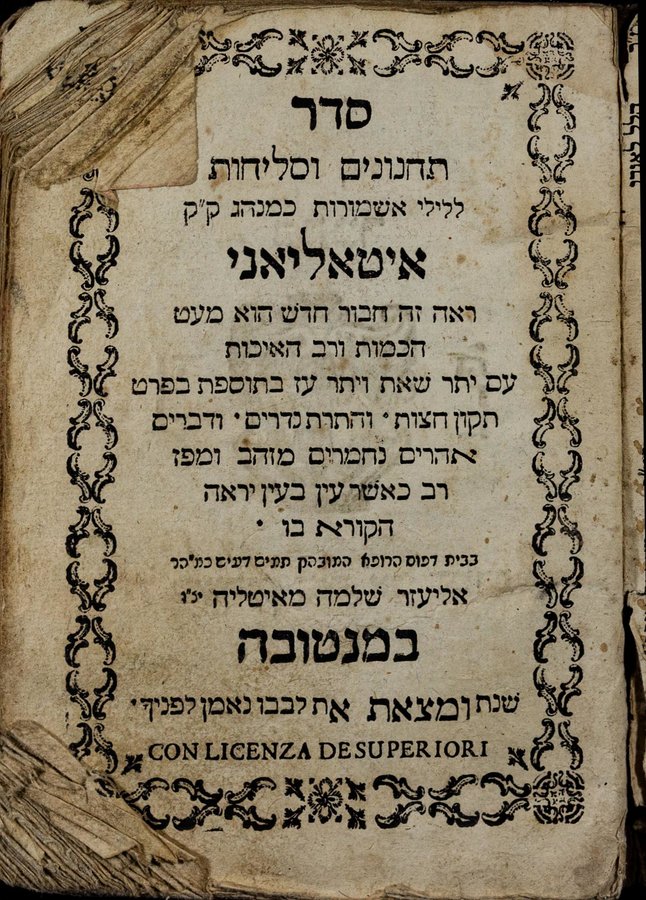 סדר
תחנונים וסליחות
ללילי אשמורות כמנהג ק״ק
איטאליאני
ראה זה חבור חדש הוא מעט
הכמות ורב האיכות
עם יתר שאת ויתר עז בתוספת בפרט
תקון חצות · והתרת נדרים · ודברים
אחרים נחמרים מזהב ומפז
רב כאשר עין בעין יראה
הקורא בו ·
בבית דפוס הרופא המובהק תמים דעים כמ״הר
אליעזר שלמה מאיטליה יצ״ו
במנטובה
שנת ומצאת את לבבו נאמן לפניך ·
CON LICENZA DE SUPERIORI